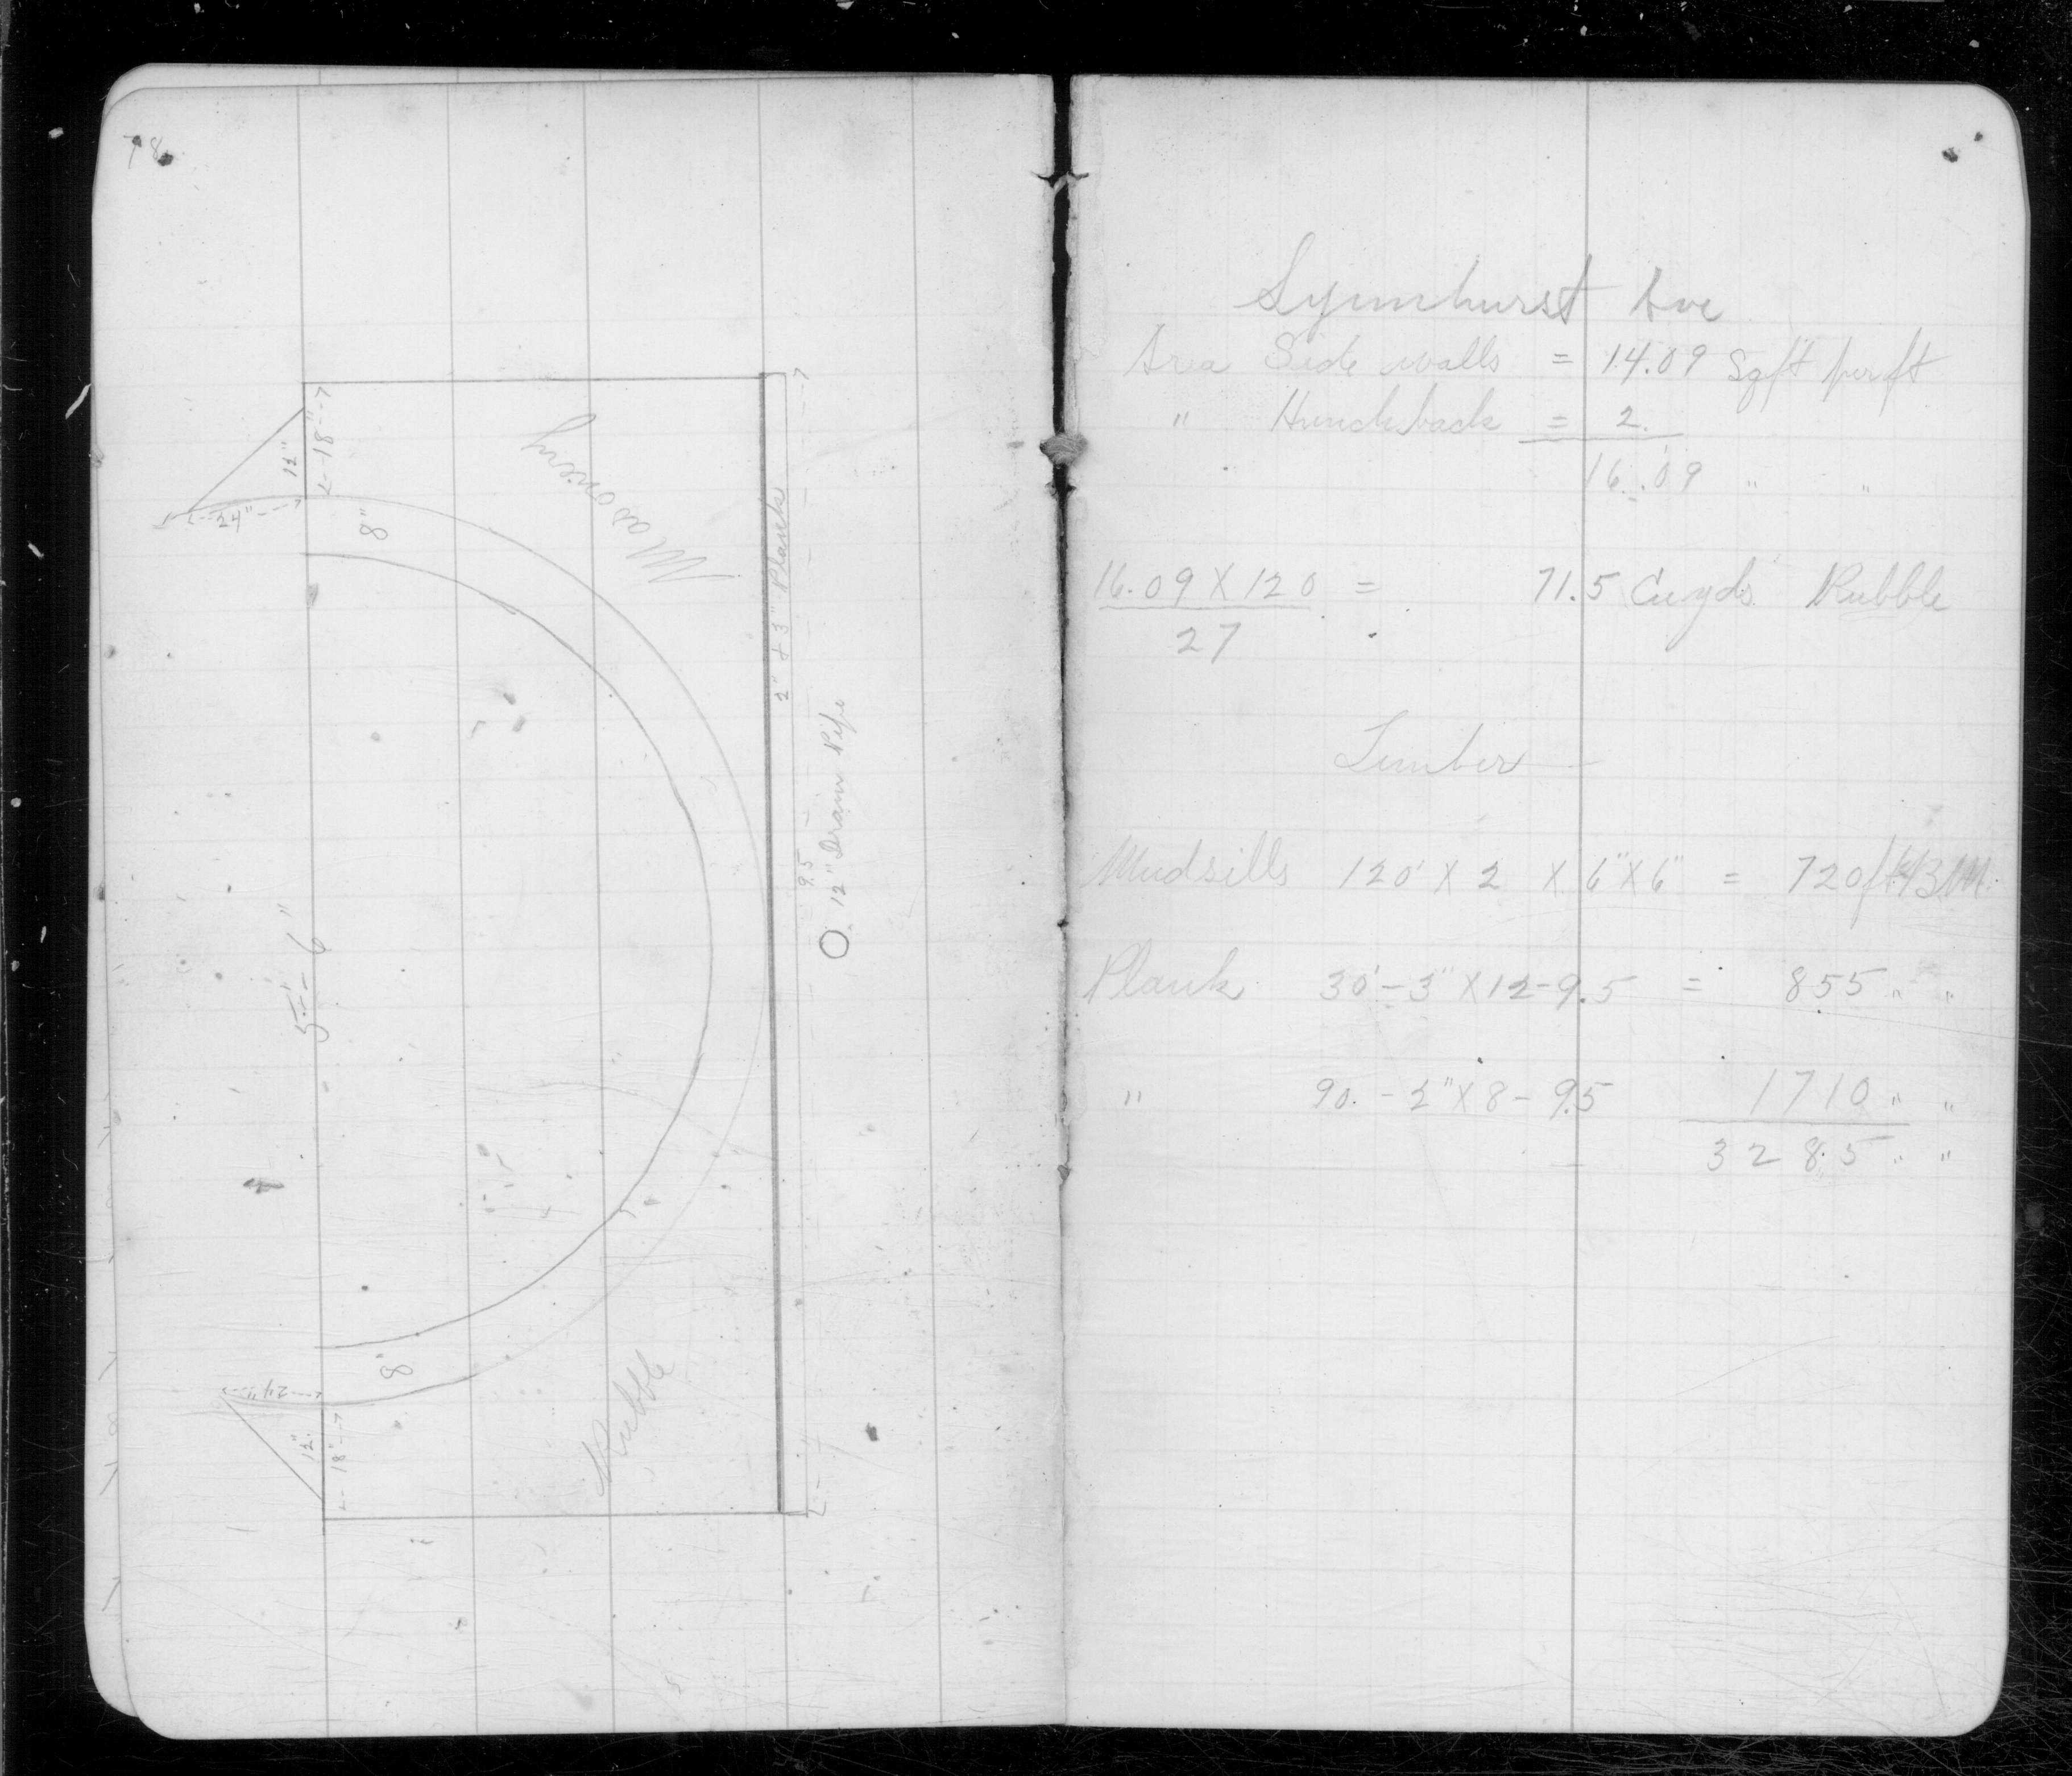 78
12"
18"
24"
8"
Masonry
2" + 3" Planks
9.5
12" Drain Pipe
5'-6"
8"
24"
12"
18"
Rubble
Lymhurst Ave
Area Side walls = 14.09 Sqft per ft
" Hunchback = 2.
16.09 " "
16.09 X 120 = 71.5 Cuyds Rubble
27
Timber
Mudsills 120' X 2 X 6" X 6" = 720 ft BM
Plank 30'-3" X 12-9.5 = 855 " "
" 90.-2" X 8-9.5 1710 " "
3285 " "